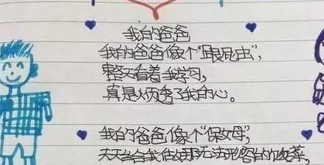 我的爸爸
我的爸爸像个“跟屁虫”，
整天看着我学习，
真是火透了我的心。
我的爸爸像个“保姆”
天天给我做那无法形容的